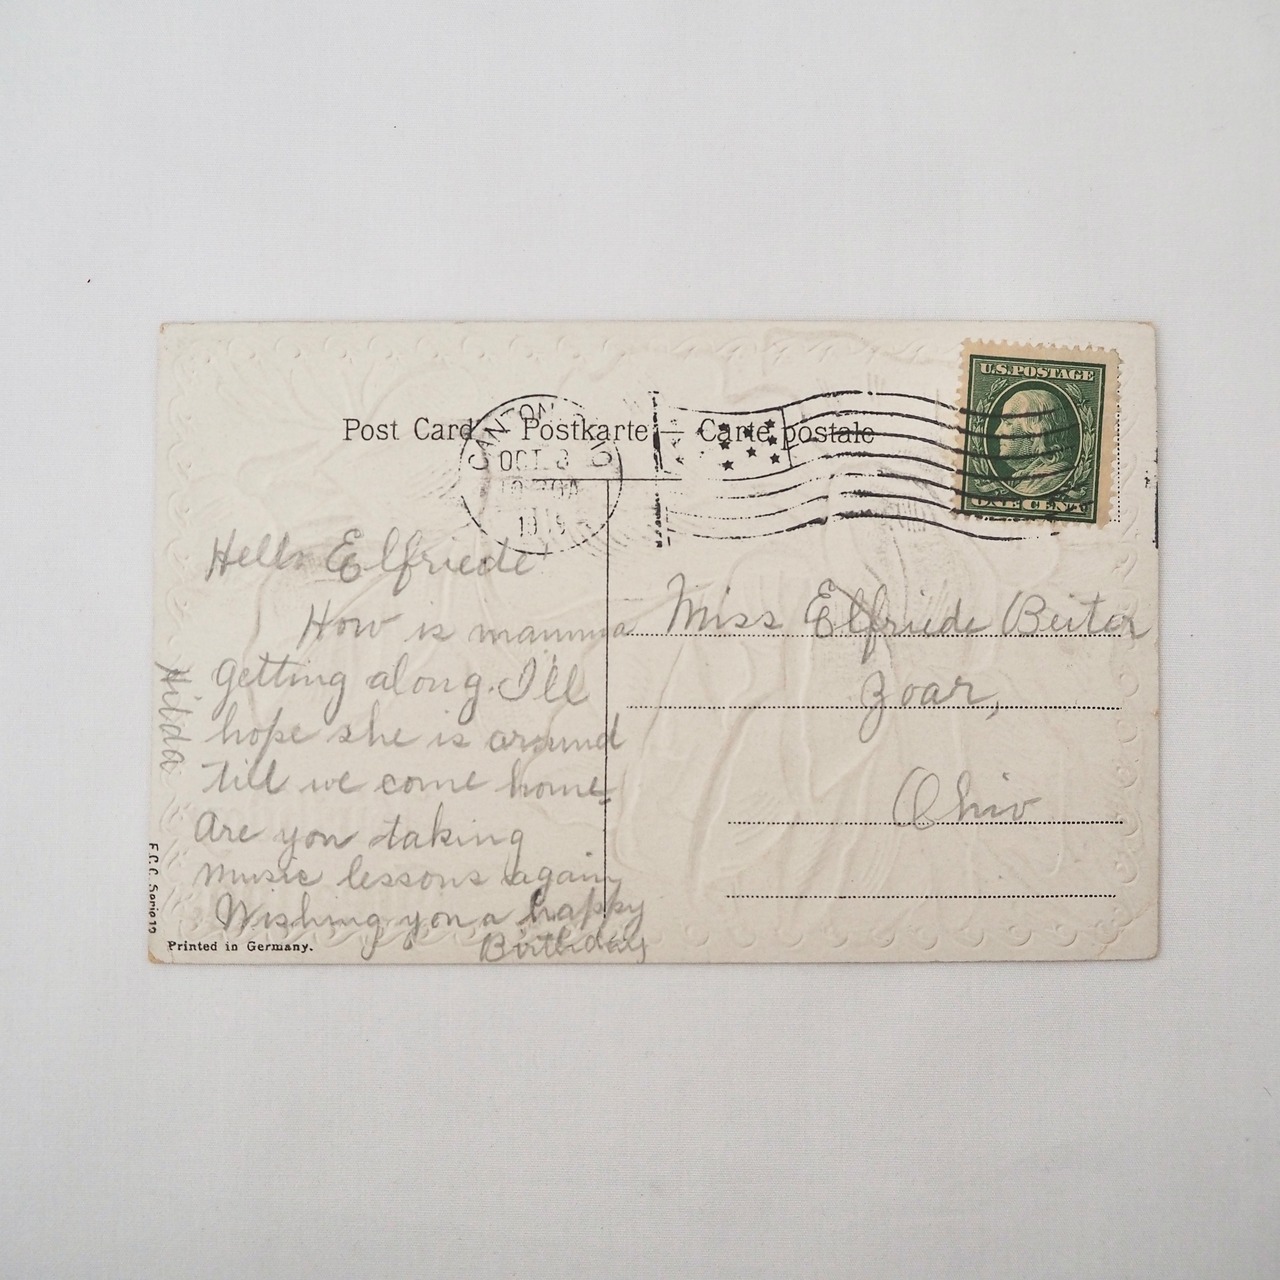 Post Card — Postkarte — Carte postale
CANTON
OCT 3
U.S. POSTAGE
ONE CENT
Hello Elfriede
How is mamma
getting along. I'll
hope she is around
till we come home.
Are you taking
music lessons again
Wishing you a happy
Birthday
Hilda
Miss Elfriede Beiter
Zoar,
Ohio
F.C.C. Serie 12
Printed in Germany.